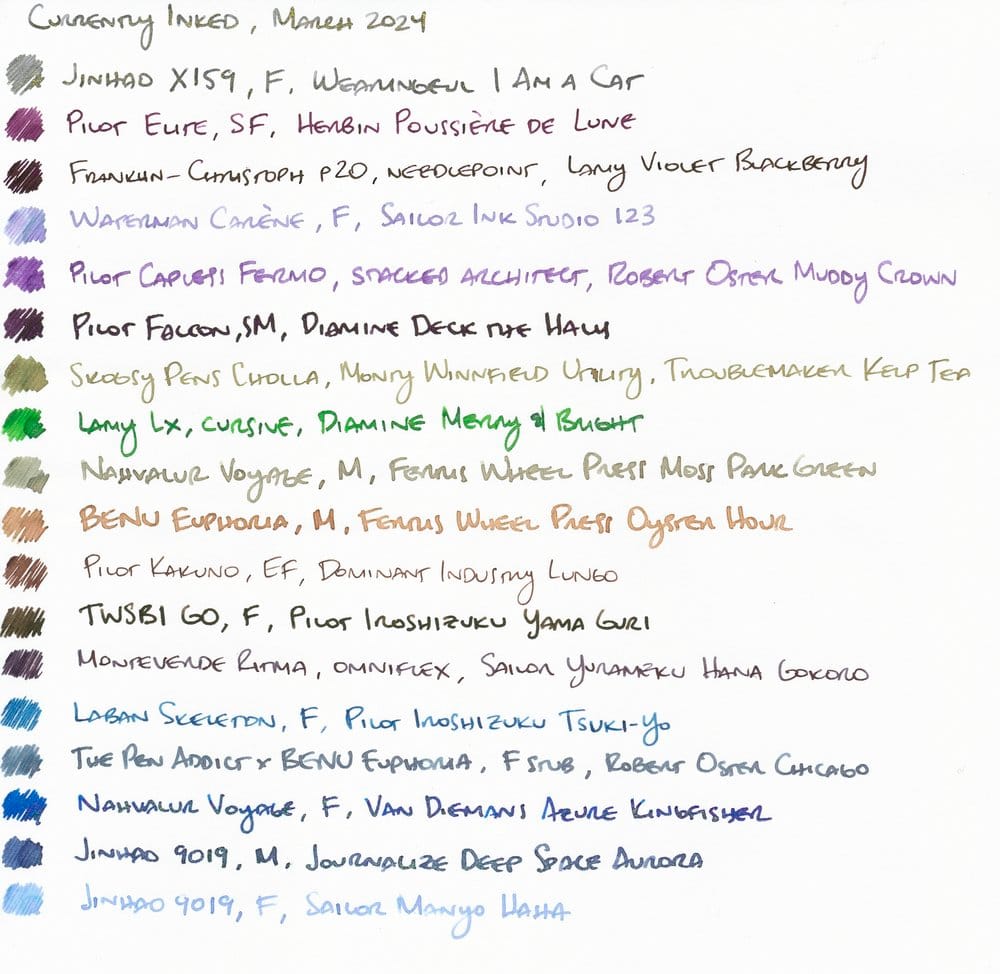 Currently Inked, March 2024
Jinhao X159, F, Wearingeul I Am a Cat
Pilot Elite, SF, Herbin Poussière de Lune
Franklin-Christoph P20, needlepoint, Lamy Violet Blackberry
Waterman Carène, F, Sailor Ink Studio 123
Pilot Capless Fermo, stacked architect, Robert Oster Muddy Crown
Pilot Falcon, SM, Diamine Deck the Halls
Skogsy Pens Cholla, Monty Winnfield Utility, Troublemaker Kelp Tea
Lamy Lx, cursive, Diamine Merry & Bright
Nahvalur Voyage, M, Ferris Wheel Press Moss Park Green
BENU Euphoria, M, Ferris Wheel Press Oyster Hour
Pilot Kakuno, EF, Dominant Industry Lungo
TWSBI GO, F, Pilot Iroshizuku Yama Guri
Monteverde Ritma, omniflex, Sailor Yurameku Hana Gokoro
Laban Skeleton, F, Pilot Iroshizuku Tsuki-Yo
The Pen Addict x BENU Euphoria, F stub, Robert Oster Chicago
Nahvalur Voyage, F, Van Diemans Azure Kingfisher
Jinhao 9019, M, Journalize Deep Space Aurora
Jinhao 9019, F, Sailor Manyo Haha